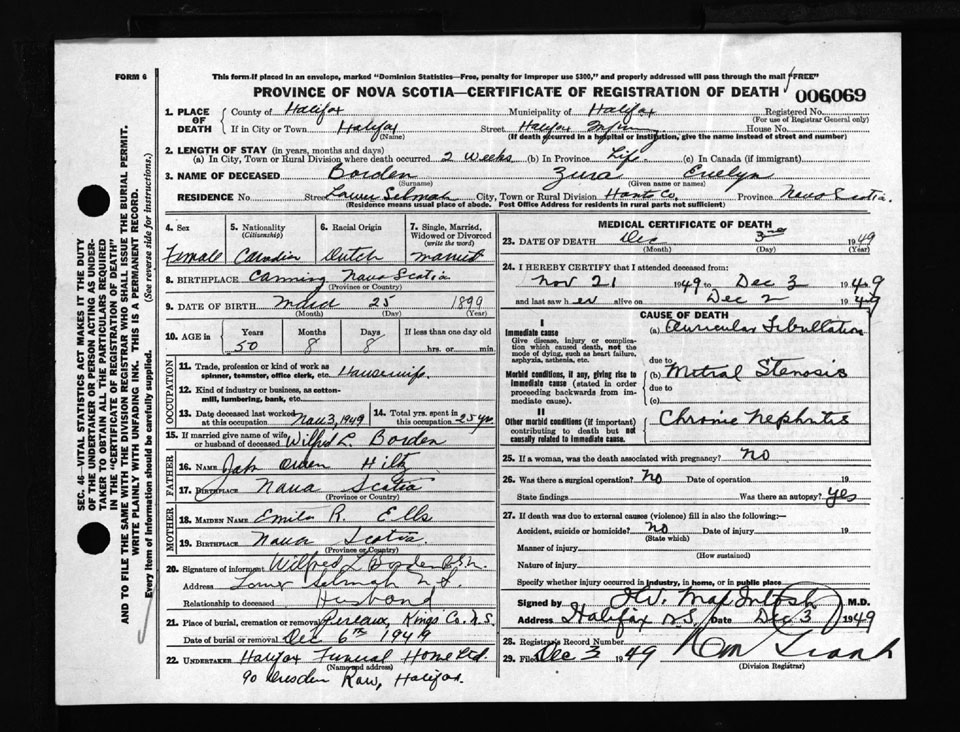 FORM 6
This form if placed in an envelope, marked "Dominion Statistics—Free, penalty for improper use $300," and properly addressed will pass through the mail "FREE"
PROVINCE OF NOVA SCOTIA—CERTIFICATE OF REGISTRATION OF DEATH
006069
1. PLACE OF DEATH
County of Halifax Municipality of Halifax Registered No.
(For use of Registrar General only)
If in City or Town Halifax Street Halifax Infirmary House No.
(Name) (If death occurred in a hospital or institution, give the name instead of street and number)
2. LENGTH OF STAY (in years, months and days)
(a) In City, Town or Rural Division where death occurred 2 Weeks (b) In Province Life (c) In Canada (if immigrant)
3. NAME OF DECEASED Borden Zura Evelyn
(Surname) (Given name or names)
RESIDENCE No. Street Lower Selmah City, Town or Rural Division Hants Co. Province Nova Scotia
(Residence means usual place of abode. Post Office Address for residents in rural parts not sufficient)
4. Sex
Female
5. Nationality
(Citizenship)
Canadian
6. Racial Origin
Dutch
7. Single, Married, Widowed or Divorced
(write the word)
married
8. BIRTHPLACE Canning Nova Scotia
(Province or Country)
9. DATE OF BIRTH 25 1899
(Month) (Day) (Year)
10. AGE in
Years Months Days If less than one day old
50 8 8 hrs. or min.
OCCUPATION
11. Trade, profession or kind of work as spinner, teamster, office clerk, etc. Housewife
12. Kind of industry or business, as cotton-mill, lumbering, bank, etc.
13. Date deceased last worked at this occupation Nov 3, 1949
14. Total yrs. spent in this occupation 25 yrs
15. If married give name of wife or husband of deceased Wilfred L. Borden
FATHER
16. Name Owen Hiltz
17. Birthplace Nova Scotia
(Province or Country)
MOTHER
18. Maiden Name R. Ells
19. Birthplace Nova Scotia
(Province or Country)
20. Signature of informant Wilfred L Borden
Address Lower Selmah N.S.
Relationship to deceased Husband
21. Place of burial, cremation or removal Pereaux, Kings Co. N.S.
Date of burial or removal Dec 6th 1949
22. UNDERTAKER Halifax Funeral Home Ltd.
(Name and address)
90 Dresden Row, Halifax.
MEDICAL CERTIFICATE OF DEATH
23. DATE OF DEATH Dec 3rd 1949
(Month) (Day) (Year)
24. I HEREBY CERTIFY that I attended deceased from:
Nov 21 1949 to Dec 3 1949
and last saw her alive on Dec 2 1949
CAUSE OF DEATH
I
Immediate cause
Give disease, injury or complication which caused death, not the mode of dying, such as heart failure, asphyxia, asthenia, etc.
(a) Auricular Fibrillation
due to
Morbid conditions, if any, giving rise to immediate cause (stated in order proceeding backwards from immediate cause).
(b) Mitral Stenosis
due to
(c)
II
Other morbid conditions (if important) contributing to death but not causally related to immediate cause.
Chronic Nephritis
25. If a woman, was the death associated with pregnancy? No
26. Was there a surgical operation? No Date of operation 19
State findings Was there an autopsy? Yes
27. If death was due to external causes (violence) fill in also the following:—
Accident, suicide or homicide? No Date of injury 19
(State which)
Manner of injury
(How sustained)
Nature of injury
Specify whether injury occurred in industry, in home, or in public place
Signed by H.V. MacIntosh M.D.
Address Halifax N.S. Date Dec 3 1949
28. Registrar's Record Number
29. Filed Dec 3 1949
(Division Registrar)
SEC. 46—VITAL STATISTICS ACT MAKES IT THE DUTY
OF THE UNDERTAKER OR PERSON ACTING AS UNDER-
TAKER TO OBTAIN ALL THE PARTICULARS REQUIRED
IN THE "CERTIFICATE OF REGISTRATION OF DEATH"
AND TO FILE THE SAME WITH THE DIVISION REGISTRAR WHO SHALL ISSUE THE BURIAL PERMIT.
WRITE PLAINLY WITH UNFADING INK. THIS IS A PERMANENT RECORD.
Every item of information should be carefully supplied. (See reverse side for instructions.)